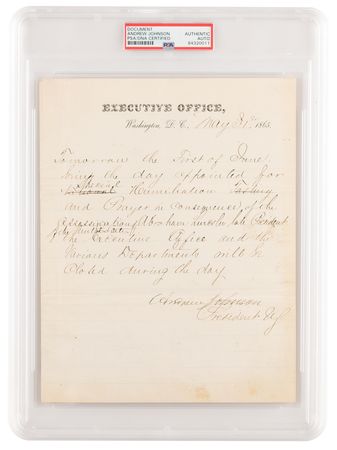 DOCUMENT
ANDREW JOHNSON
PSA/DNA CERTIFIED
AUTHENTIC
AUTO
PSA
84320011
EXECUTIVE OFFICE,
Washington, D. C. May 31st 1865.
Tomorrow the First of June
being the day appointed for
special
Humiliation
and Prayer in consequence of the
assassination of Abraham Lincoln, late President
of the United States
the Executive Office and the
various Departments will be
closed during the day.
Andrew Johnson
President U.S.